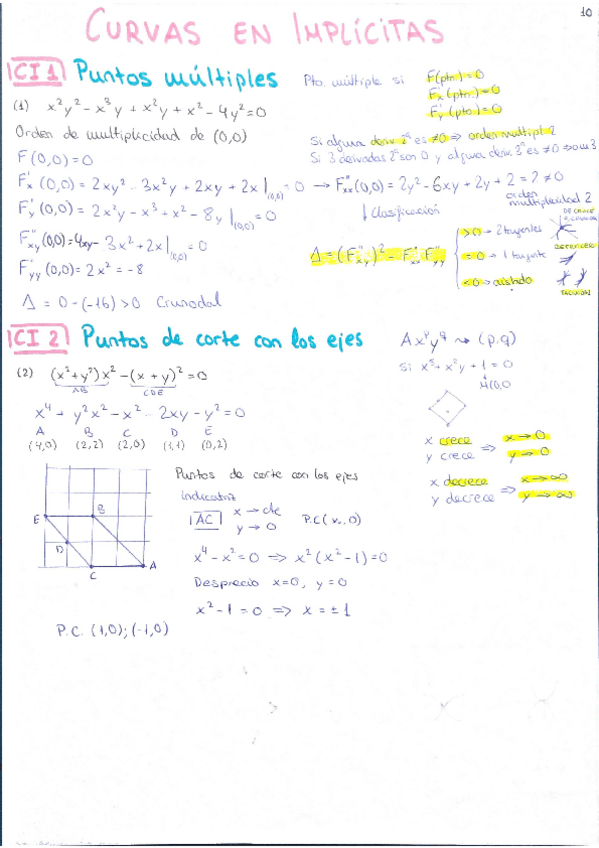 10
CURVAS EN IMPLÍCITAS
CI 1 Puntos múltiples
Pto. múltiple si F(pto.) = 0
F'x (pto.) = 0
F'y (pto.) = 0
(1) x²y² - x³y + x²y + x² - 4y² = 0
Orden de multiplicidad de (0,0)
Si alguna deriv. 2ª es ≠ 0 ⇒ orden multipl 2
Si 3 derivadas 2ª son 0 y alguna deriv. 3ª es ≠ 0 ⇒ 3
F(0,0) = 0
F'x (0,0) = 2xy² - 3x²y + 2xy + 2x |(0,0) = 0 → F''xx (0,0) = 2y² - 6xy + 2y + 2 = 2 ≠ 0
orden multiplicidad 2
F'y (0,0) = 2x²y - x³ + x² - 8y |(0,0) = 0
↓ Clasificación
F''xy (0,0) = 4xy - 3x² + 2x |(0,0) = 0
Δ = (F''xy)² - F''xx F''yy
> 0 → 2 tangentes
DE CRUCE
= 0 → 1 tangente
< 0 → aislado
F''yy (0,0) = 2x² = -8
Δ = 0 - (-16) > 0 Crunodal
CI 2 Puntos de corte con los ejes
A xᵖ y^q ⇝ (p,q)
(2) (x² + y²)x² - (x + y)² = 0
AB CDE
Si x⁵ + x²y + 1 = 0
(0,0
x⁴ + y²x² - x² - 2xy - y² = 0
A B C D E
(4,0) (2,2) (2,0) (1,1) (0,2)
x crece ⇒ x → 0
y crece y → 0
x decrece ⇒ x → ∞
y decrece y → ∞
Puntos de corte con los ejes
indicativa
AC x → cte
y → 0
P.C (x, 0)
E B
D
C A
x⁴ - x² = 0 ⇒ x² (x² - 1) = 0
Desprecio x = 0, y = 0
x² - 1 = 0 ⇒ x = ± 1
P.C. (1,0); (-1,0)